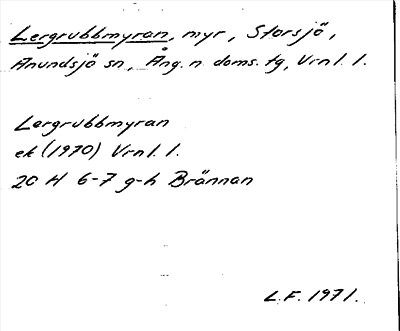 Lergrubbmyran, myr, Storsjö,
Anundsjö sn, Ång. n. doms. tg, Vrnl. l.
Lergrubbmyran
ek (1970) Vrnl. l.
20 H 6-7 g-h Brännan
L.F. 1971.